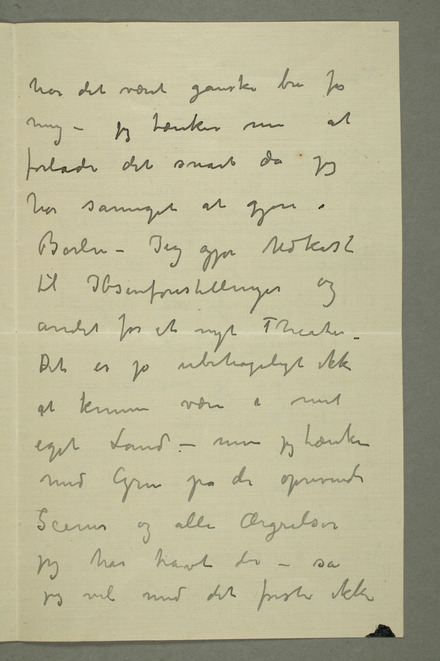 har det været ganske bra for
mig – jeg tænker nu at
forlade det snart da jeg
har sameget at gjøre i
Berlin – Jeg gjør Udkast
til Ibsenforestillinger og
andet for et nyt Theater.
Det er jo ubehageligt ikke
at kunne være i mit
eget Land – men jeg tænker
med Gru på de oprivende
Scener og alle Ærgrelser
jeg har havt der – så
jeg vil med det første ikke